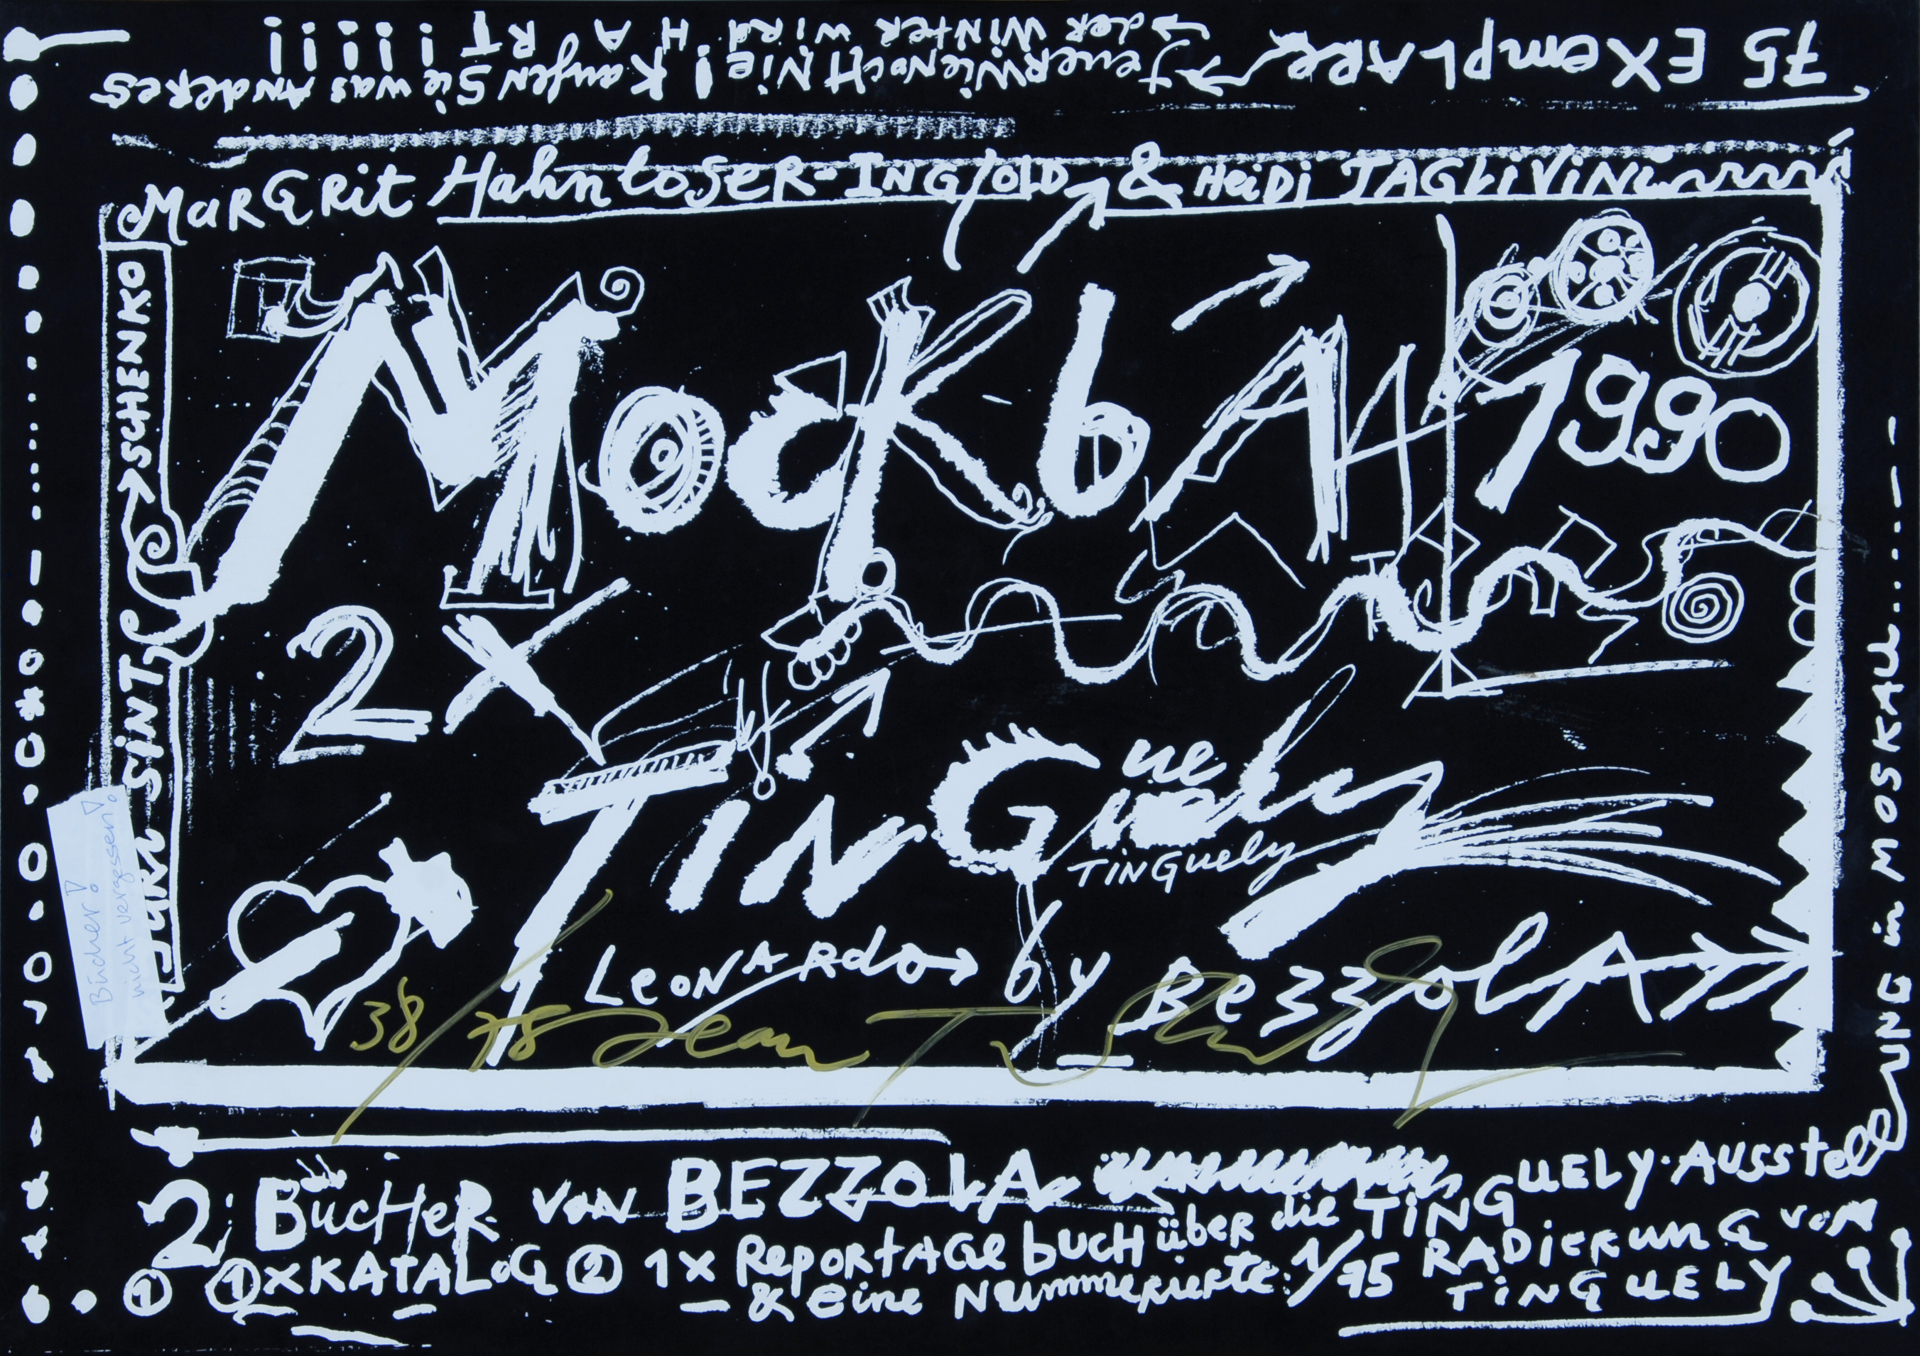 75 EXEmPLARE → feuerWieNocHNie! Kaufen Sie was AnderES
→ der WiNTER wird H A RT ! ! ! ! !
MaRGRit HahnloseR-INGOLD & HeiDi TAGLiViNi
→ SCHENKO
SiNT
MockbA 1990
2X
TiNGuely
ue
TiNGuely
LeoNARdo → by BezzolA
38/75 Jean Tinguely
Bücher!
nicht vergessen!
2 BücHeR VoN BEZZOLA
① 1 X KATALOG ② 1 X RepoRtAGe bucH übeR die TiNGUELY-AussteLLUNG in MOSKAU.....
& eine Nummerierte: 1/75 RADieRunG vom
TiNGUELY